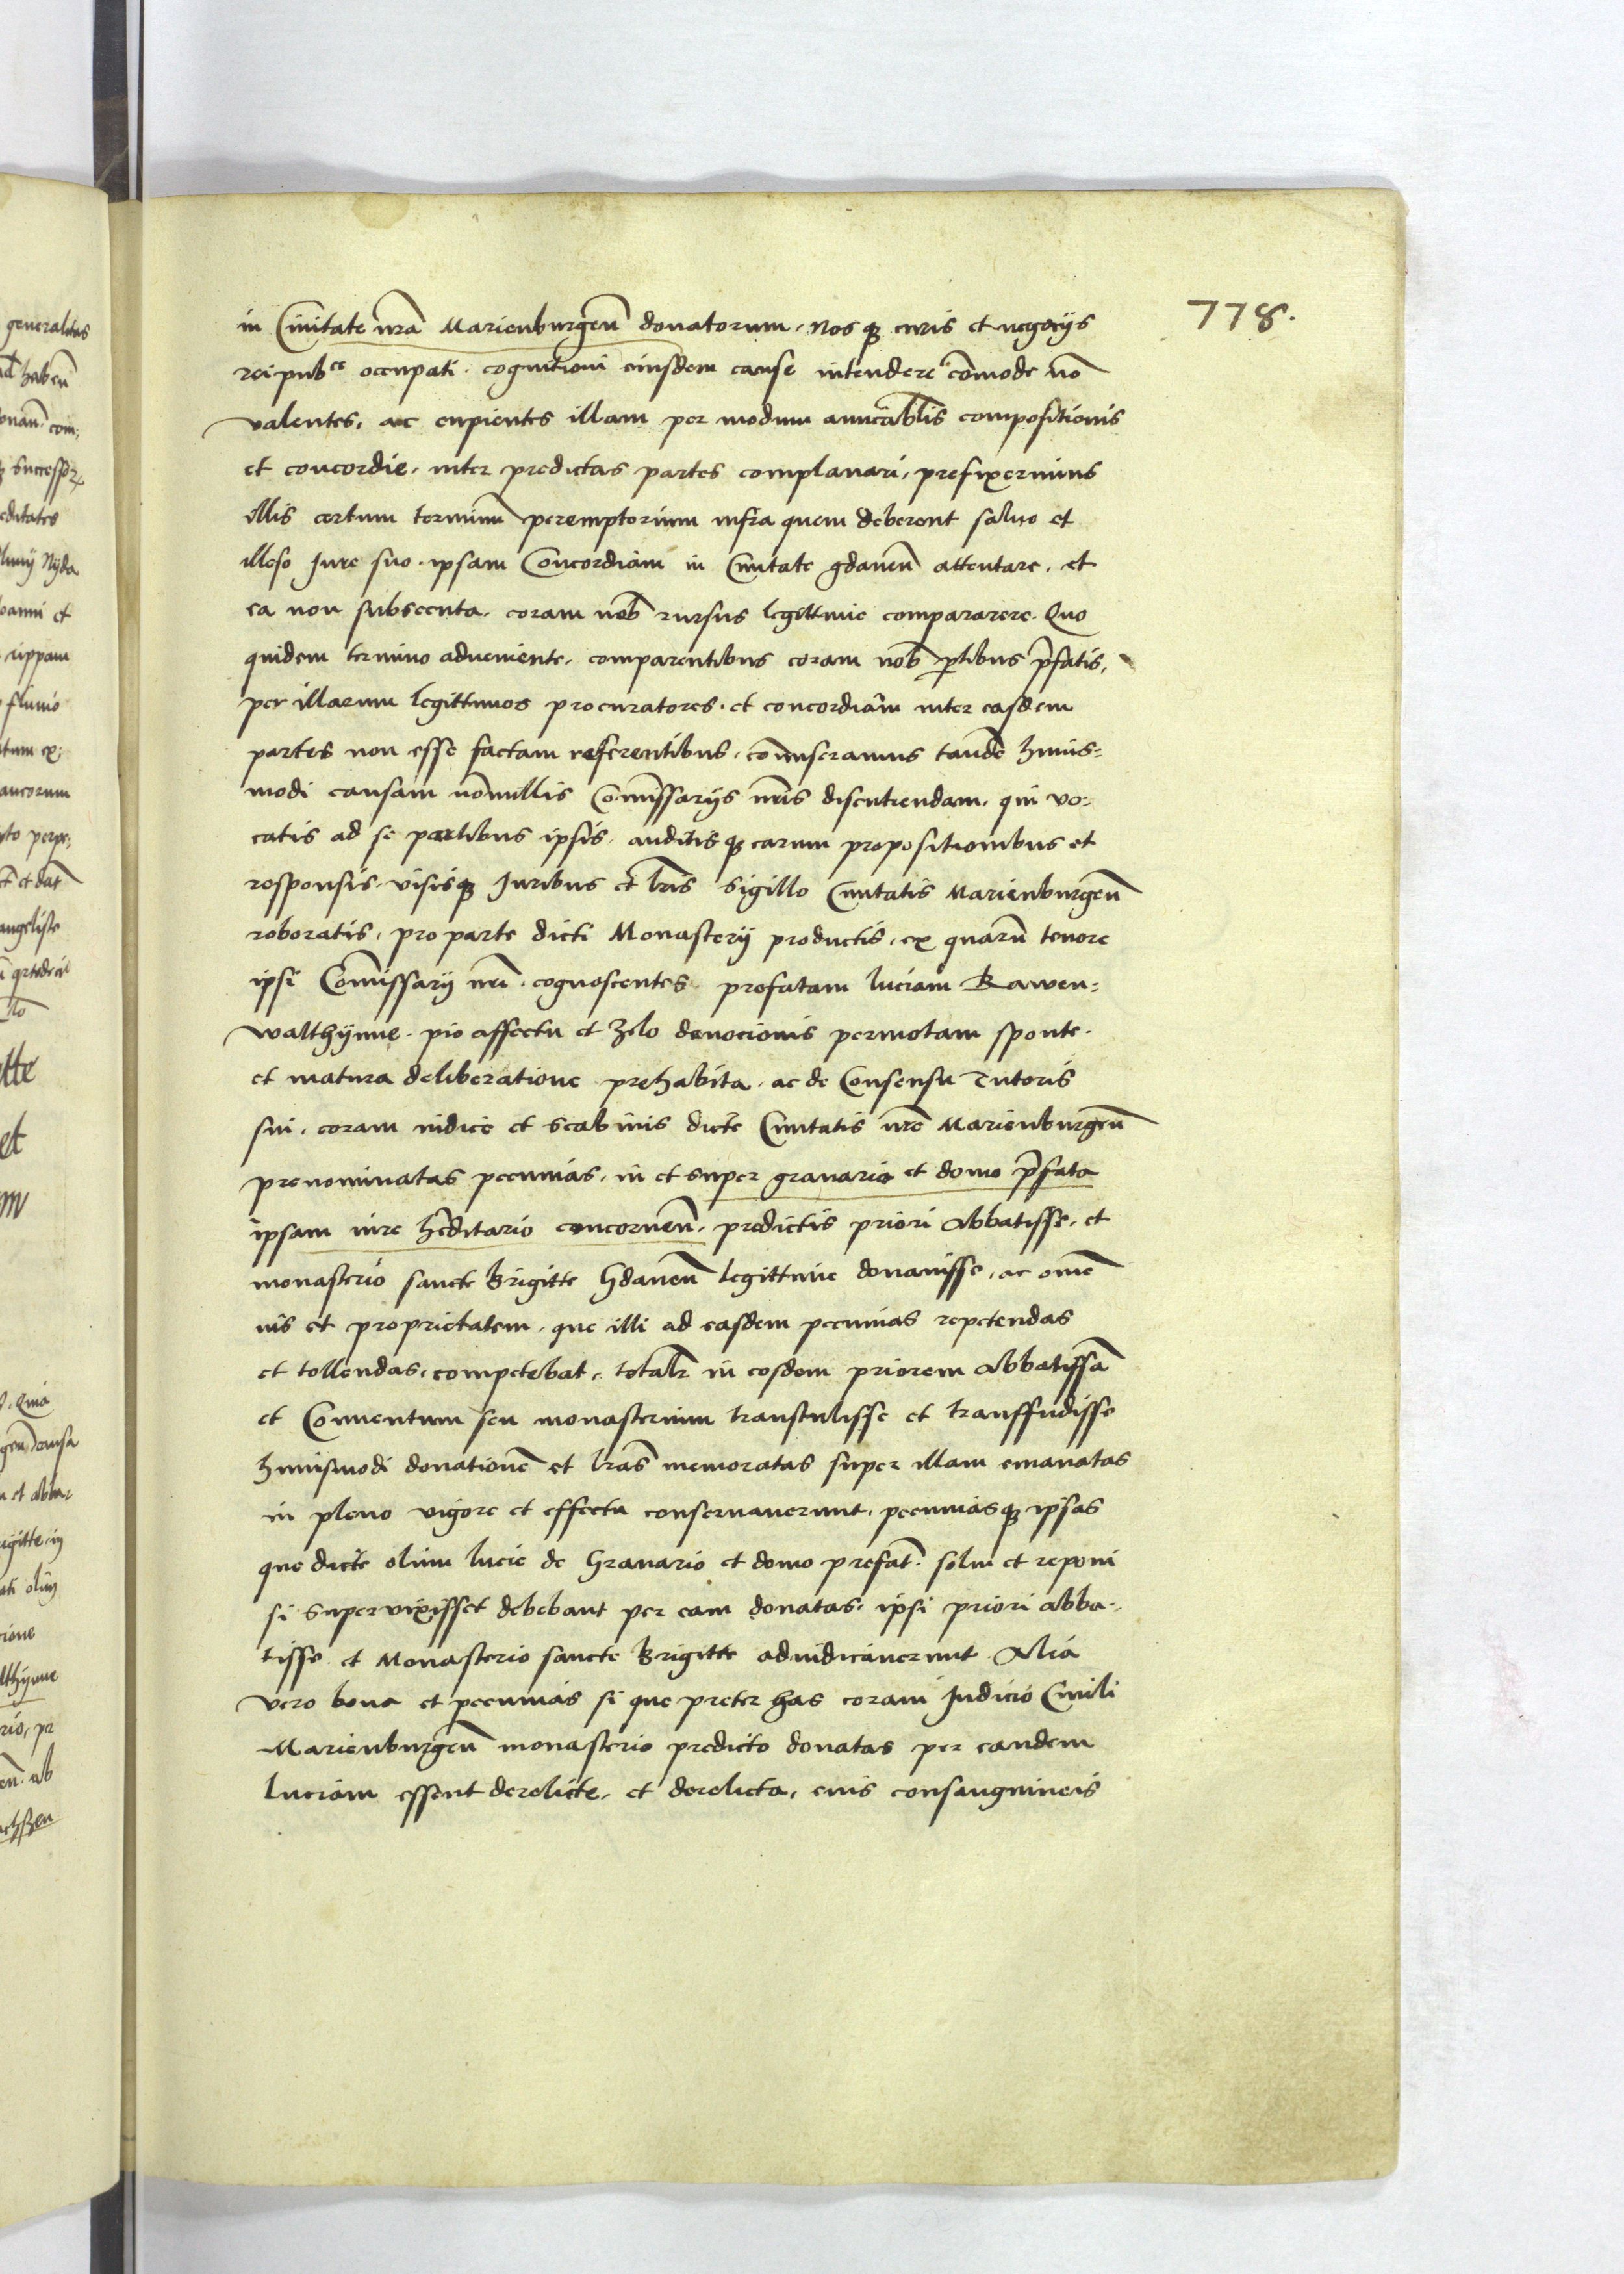 778.
in Ciuitate nrā Marienburgeñ donatorum. Nos qȝ curis et negocijs
rei pubce occupati. cognitioni eiusdem cause intendere cōmode nō
valentes, ac cupientes illam per modum amicāblis compositionis
et concordie. inter predictas partes complanari, prefixerimus
illis certum terminū peremptorium infra quem deberent saluo et
illeso Jure suo. ipsam Concordiam in Ciuitate gdaneñ attentare. et
ea non subsecuta. coram nob rursus legittime compararere. Quo
quidem termino adueniente. comparentibus coram nob ptibus p̄fatis,
per illarum legittimos procuratores. et concordiam inter easdem
partes non esse factam referentibus, cōmiseramus tandē huius=
modi causam nōnullis Cōmissarijs nr̄is discutiendam. qui vo=
catis ad se partibus ipsis. auditis qȝ earum propositionibus et
responsis. visisqȝ Juribus et lr̄is sigillo Ciuitatis Marienburgeñ
roboratis, pro parte dicti Monasterij productis, ex quarū tenore
ipsi Cōmissarij nr̄i. cognoscentes prefatam luciam Rawen=
walthÿnne. pio affectu et zelo deuocionis permotam sponte.
et matura deliberatione prehabita. ac de Consensu Tutoris
sui. coram iudice et scabinis dicte Ciuitatis nr̄e Marienburgeñ
prenominatas pecunias. in et super granario et domo p̄fata
ipsam iure hēditario concerneñ. predictis priori Abbatisse. et
monasterio sancte Brigitte Gdaneñ legittime donauisse. ac omē
ius et proprietatem. que illi ad easdem pecunias repetendas
et tollendas, competebat. totalr in eosdem priorem Abbatissā
et Conuentum seu monasterium transtulisse et transfudisse
huiusmodi donationē et lr̄as memoratas super illam emanatas
in pleno vigore et effectu conseruauerunt. pecuniasqȝ ipsas
que dicte olim lucie de Granario et domo prefat̄. solui et reponi
si superuixisset debebant per eam donatas. ipsi priori abba=
tisse et Monasterio sancte Brigitte adiudicauerunt. Alia
vero bona et pecunias si que preter has coram Judicio Ciuili
Marienburgeñ monasterio predicto donatas per eandem
luciam essent derelicte. et derelicta, eius consanguineis